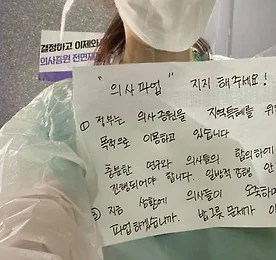 결정하고 이제와
의사증원 전면재
" 의사파업 " 지지 해주세요!
① 정부는 의사증원을 지역특혜를 위
목적으로 이용하고 있습니다
충분한 연구와 의사들의 합의하에
진행되어야 합니다. 일방적 증행 안
② 지금 상황에 의사들이 오죽하
파업하겠습니까. 밥그릇 문제가 아